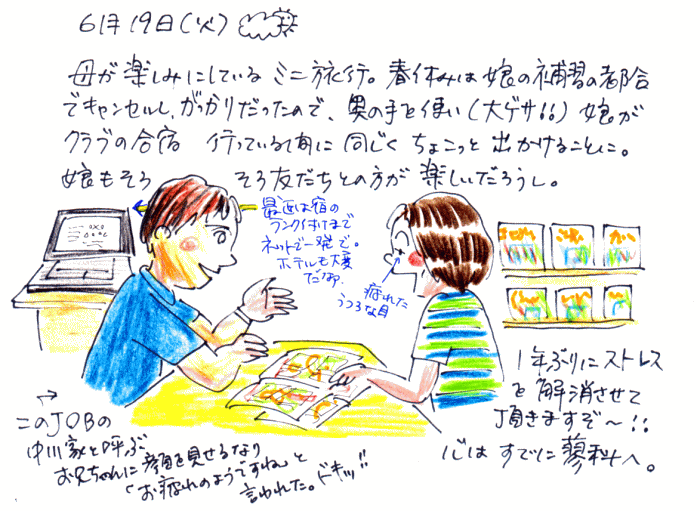 6月19日(火)
母が楽しみにしているミニ旅行。春休みは娘の補習の都合
でキャンセルし、がっかりだったので、奥の手を使い(大ゲサ!!)娘が
クラブの合宿 行っている間に 同じく ちょこっと 出かけることに。
娘もそろそろ友だちとの方が 楽しいだろうし。
最近は宿の
ランク付けまで
ネットで一発で。
ホテルも大変
だなぁ。
疲れた
うつろな目
1年ぶりにストレス
を解消させて
頂きますぞ〜!!
心はすでに蓼科へ。
このJOBの
中川家と呼ぶ
お兄ちゃんに 顔を見せるなり
「お疲れのようですね」と
言われた。ドキッ!!